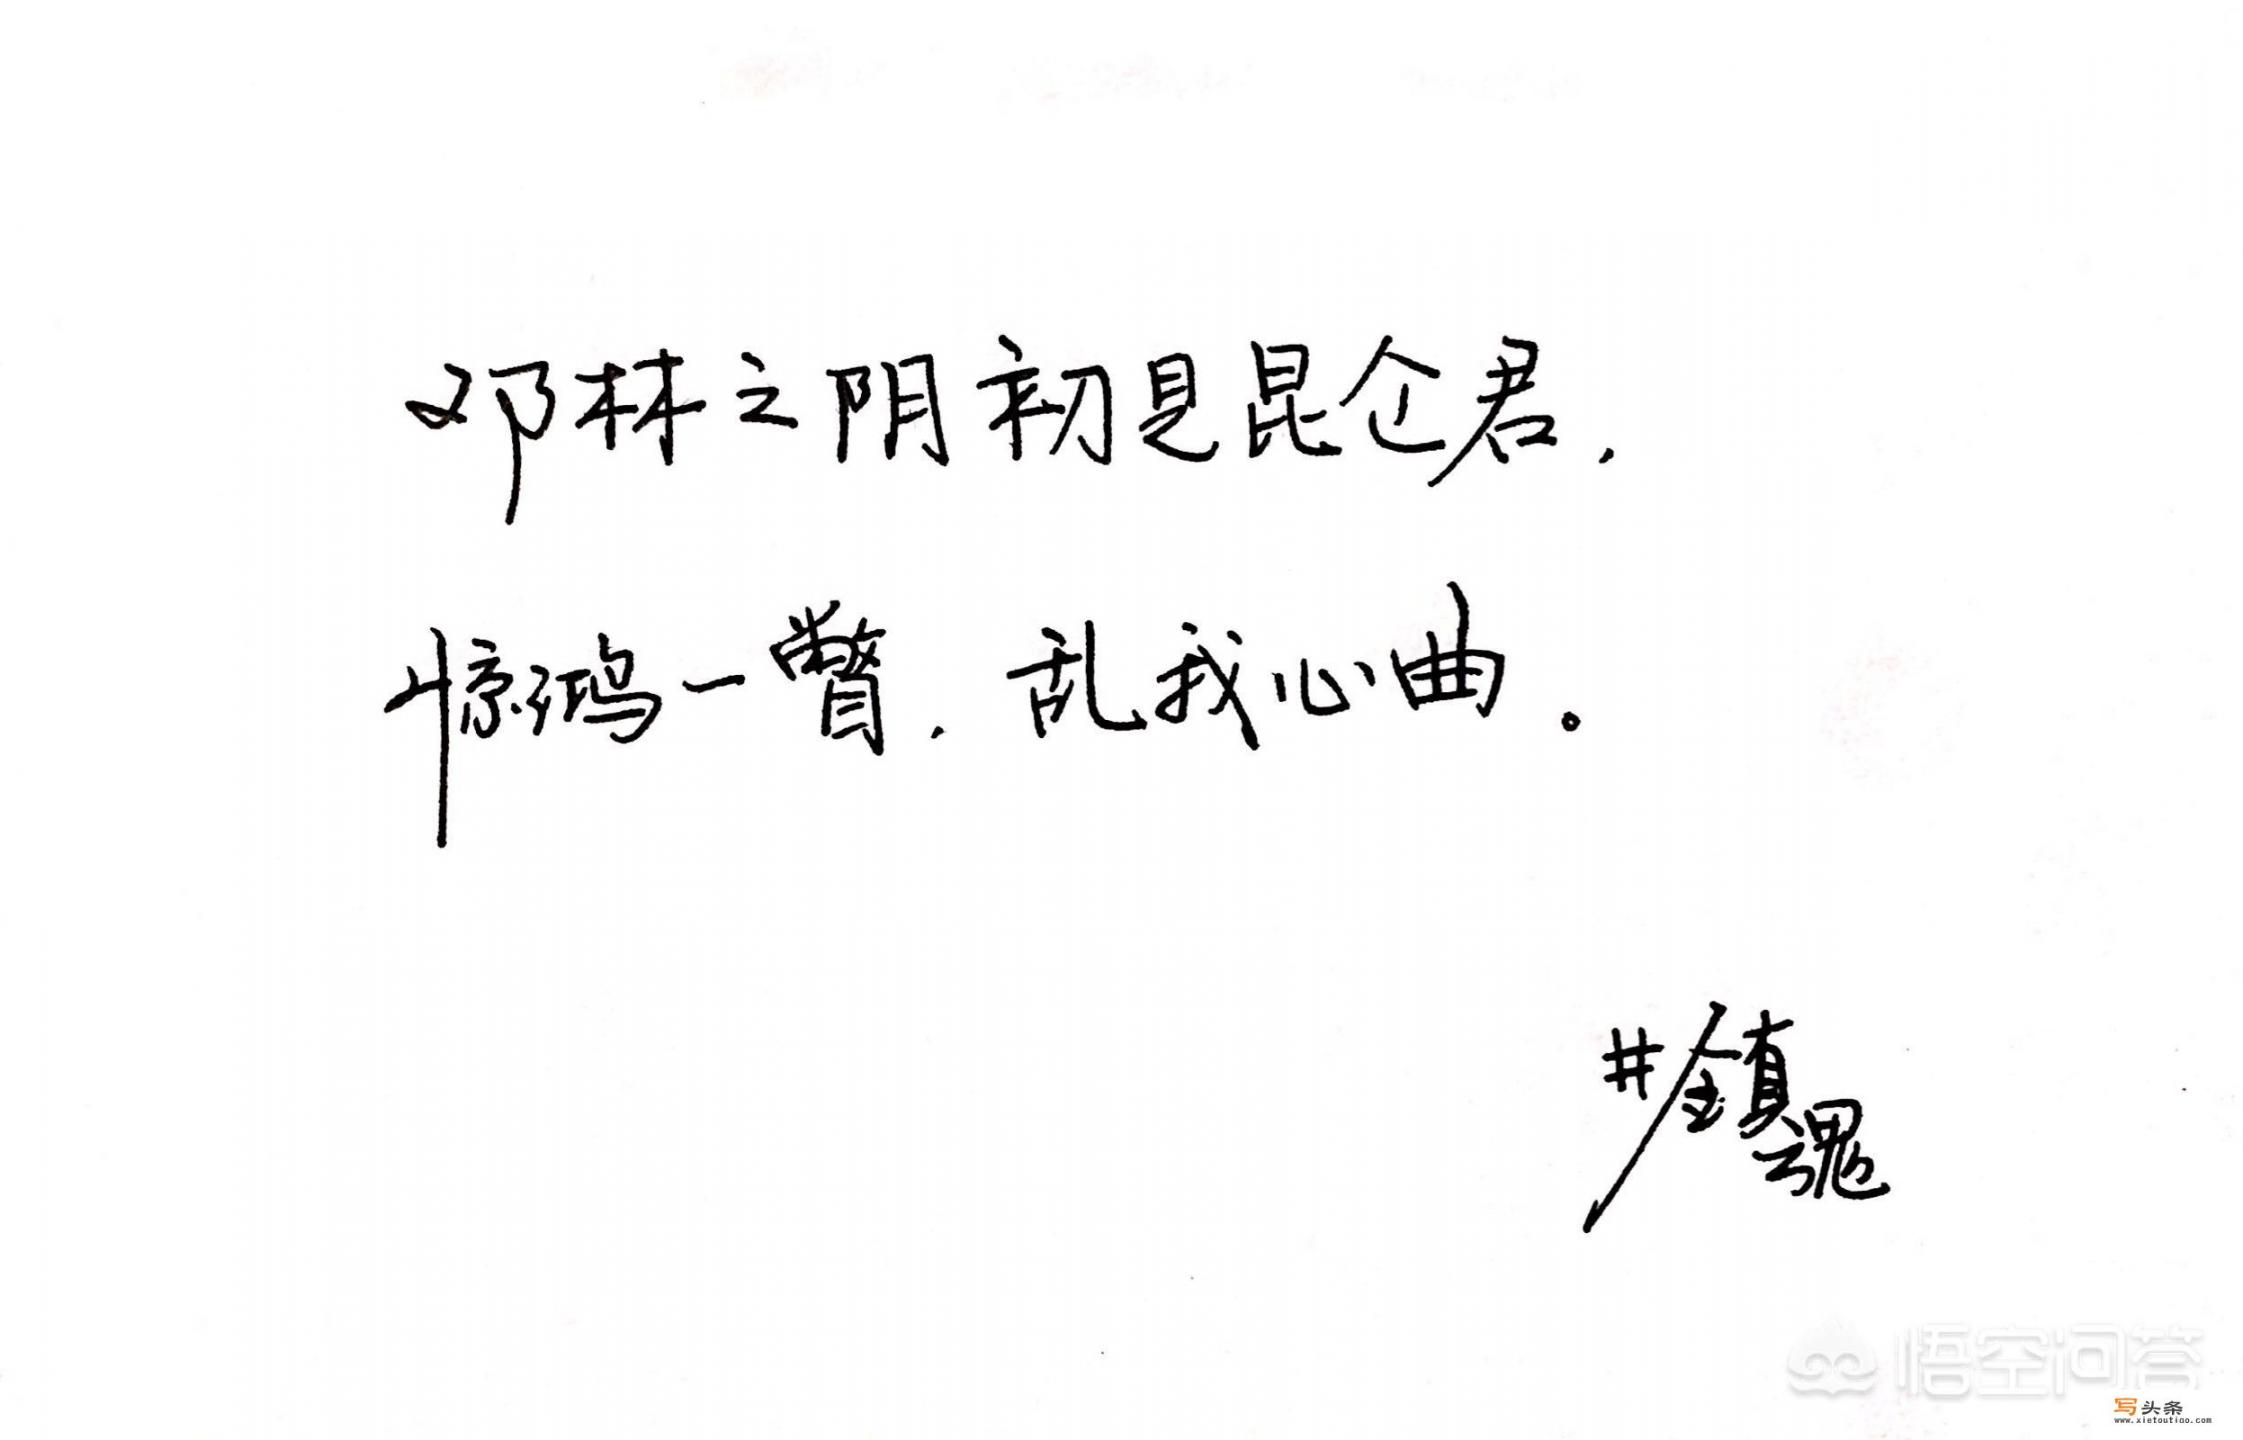 邓林之阴初见昆仑君，
惊鸿一瞥，乱我心曲。
#镇魂
悟空问答
写头条
www.xietoutiao.com